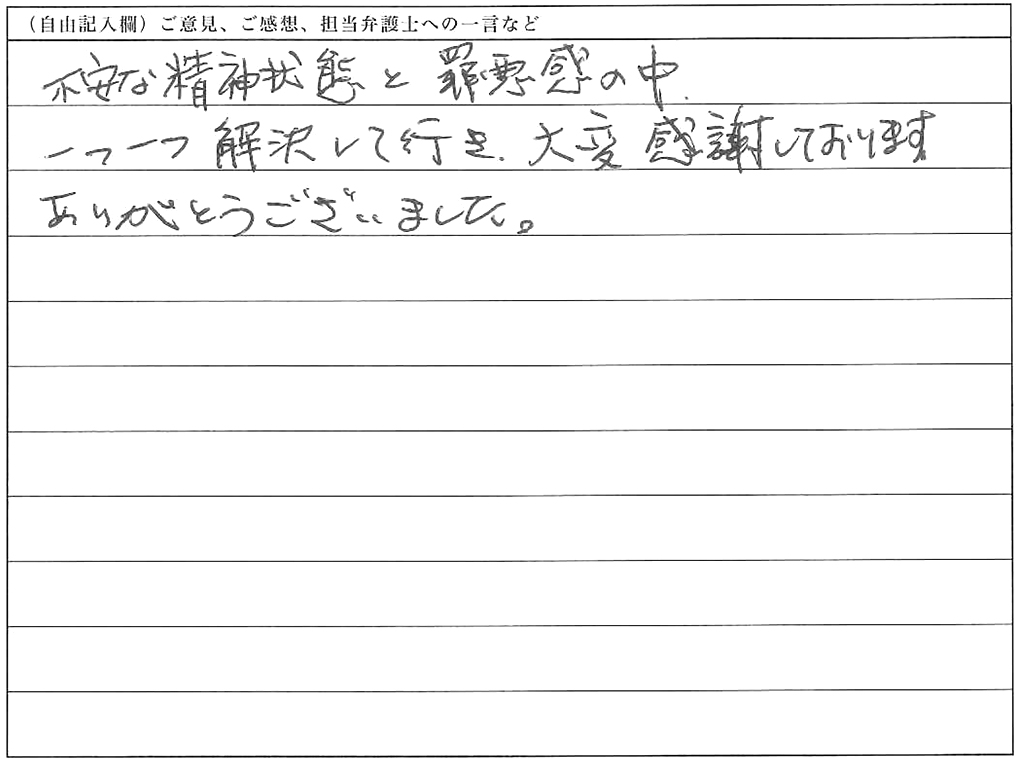 （自由記入欄）ご意見、ご感想、担当弁護士への一言など
不安な精神状態と罪悪感の中、
一つ一つ解決して行き、大変感謝しております
ありがとうございました。